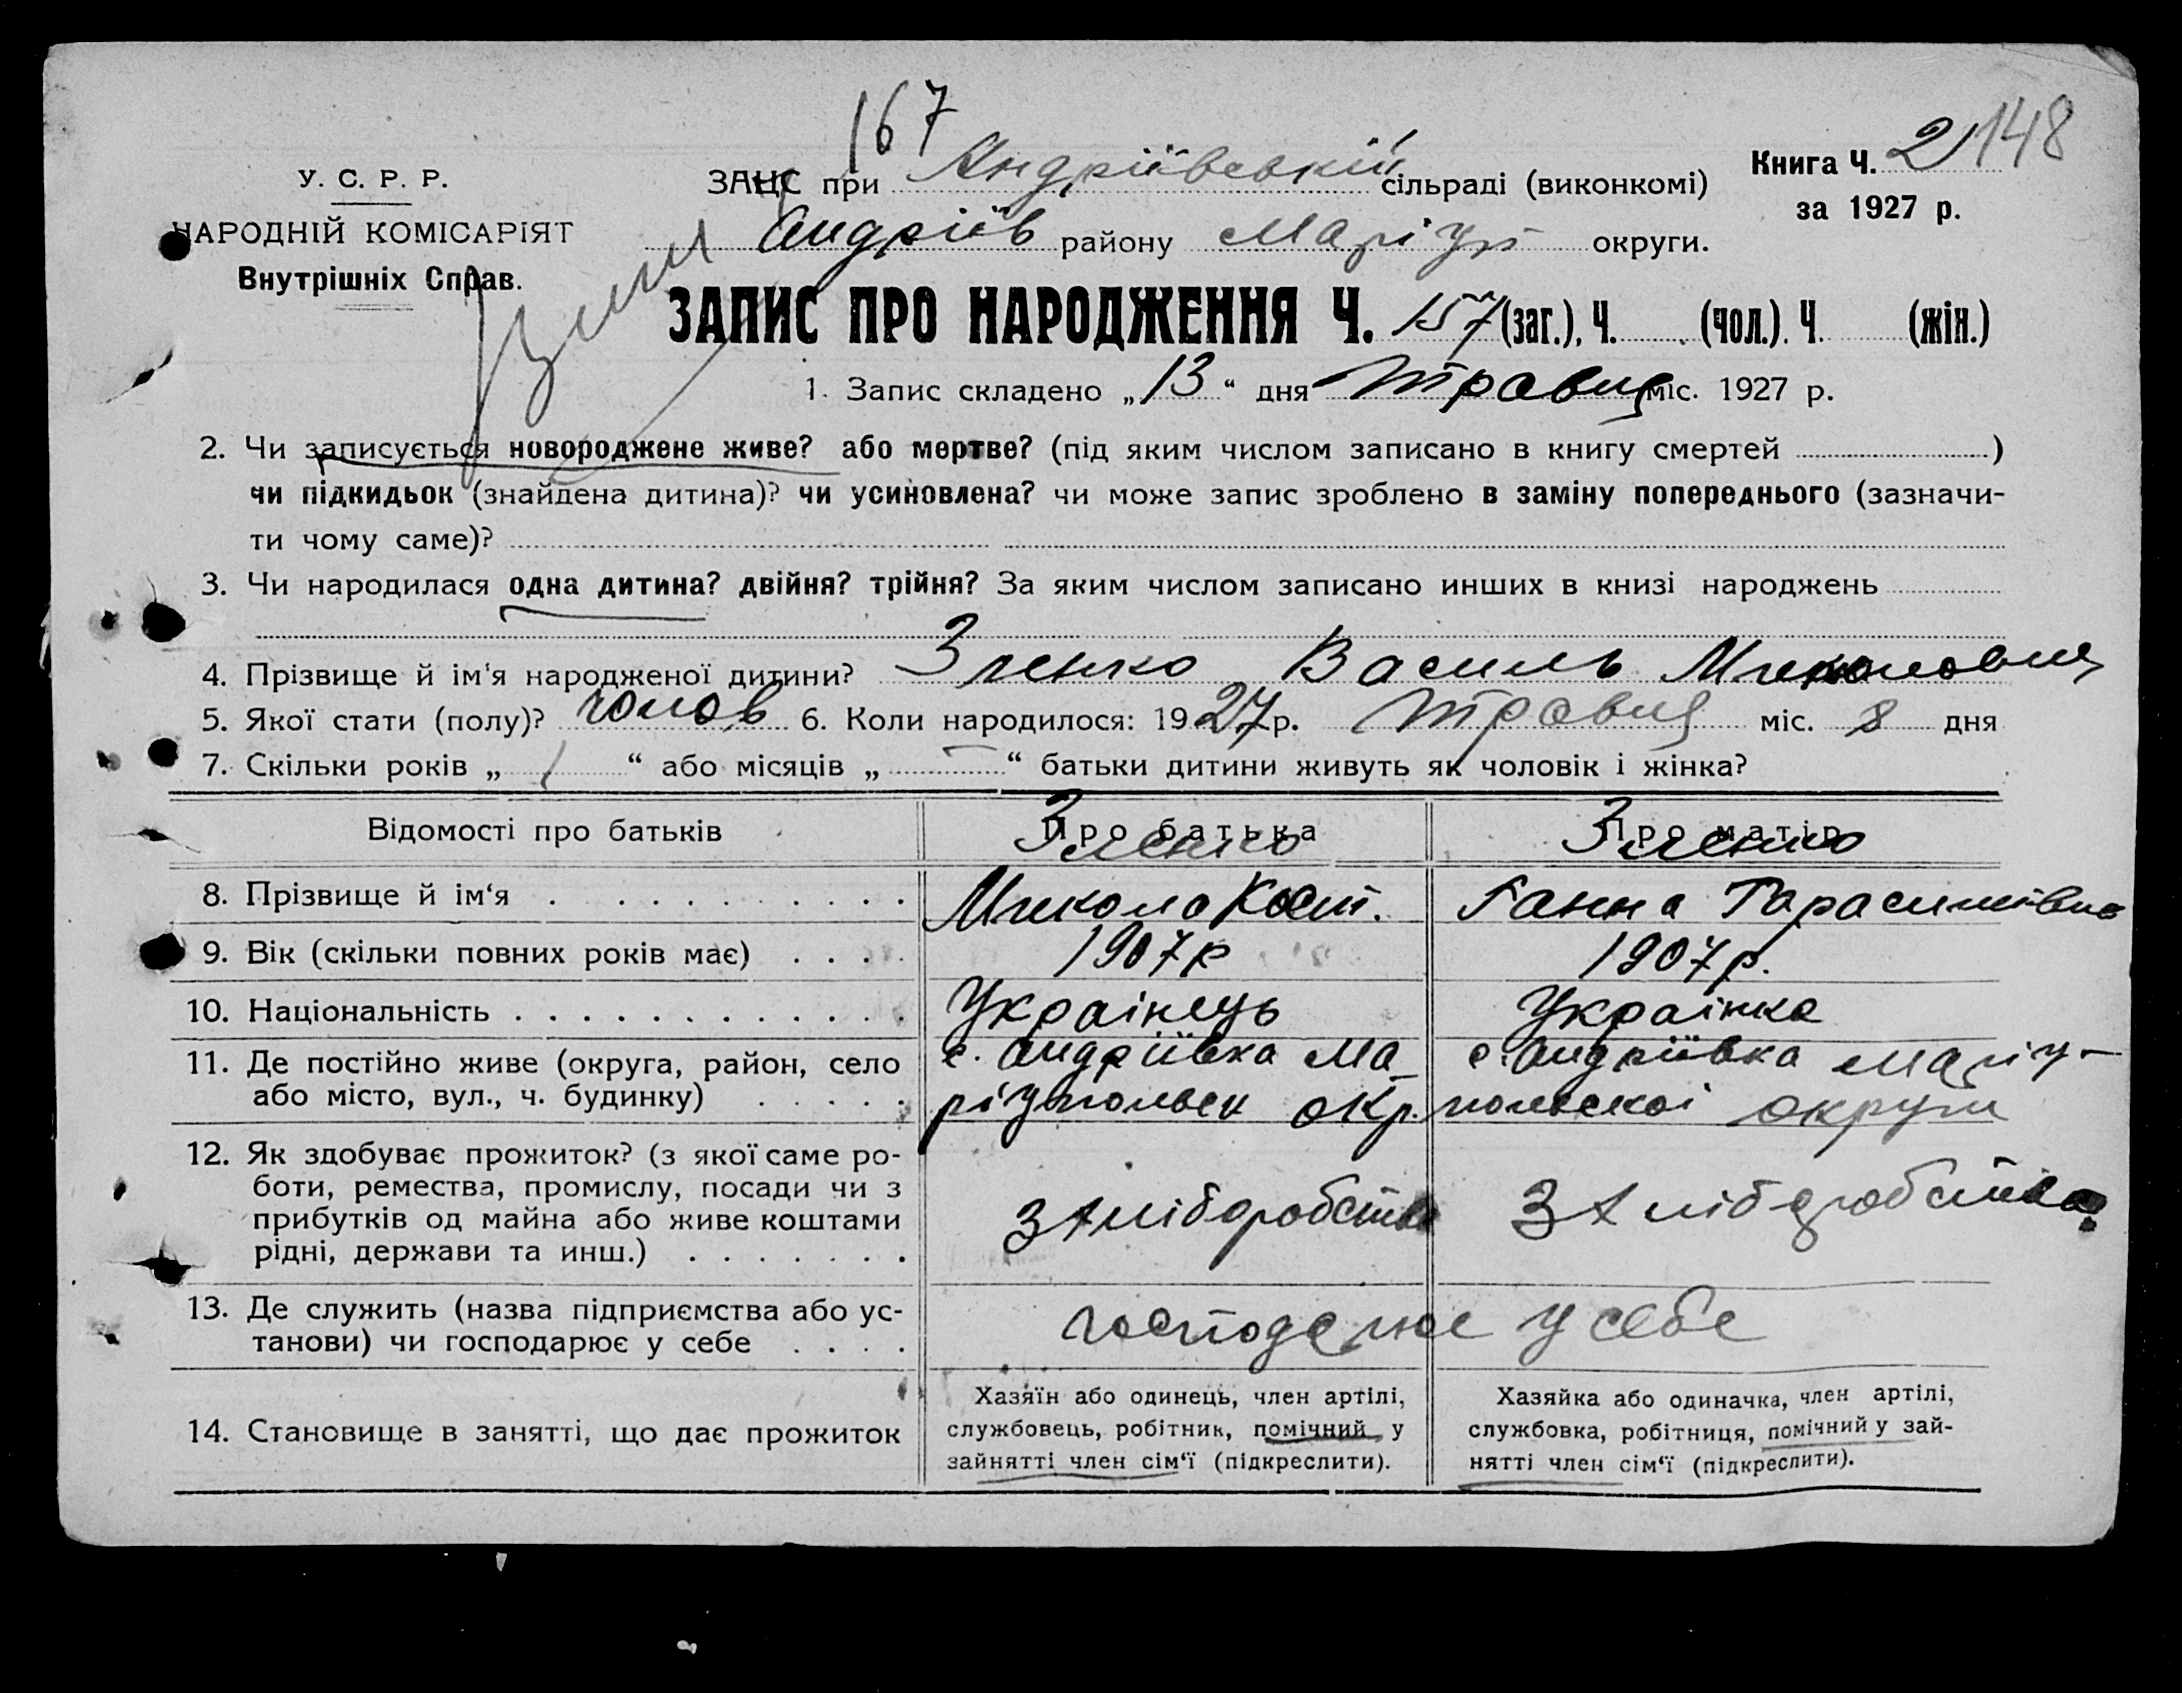 167
148
У. С. Р. Р.
НАРОДНІЙ КОМІСАРІЯТ
Внутрішніх Справ.
ЗАЦС при Андріївській сільраді (виконкомі)
Андріїв району Маріуп округи.
Книга Ч. 2
за 1927 р.
ЗАПИС ПРО НАРОДЖЕННЯ Ч. 157 (заг.), Ч. (чол.). Ч. (жін.)
1. Запис складено „13“ дня травця міс. 1927 р.
2. Чи записується новороджене живе? або мертве? (під яким числом записано в книгу смертей )
чи підкидьок (знайдена дитина)? чи усиновлена? чи може запис зроблено в заміну попереднього (зазначи-
ти чому саме)?
3. Чи народилася одна дитина? двійня? трійня? За яким числом записано инших в книзі народжень
4. Прізвище й ім‘я народженої дитини? Зленко Василь
5. Якої стати (полу)? чолов 6. Коли народилося: 1927 р. травця міс. 8 дня
7. Скільки років „ 1 “ або місяців „ — “ батьки дитини живуть як чоловік і жінка?
Відомості про батьків
Про батька
Про матір
Зленко
Зленко
8. Прізвище й ім‘я
Микола Кост.
Ганна
9. Вік (скільки повних років має)
1907 р
1907 р.
10. Національність
Українець
Українка
11. Де постійно живе (округа, район, село
або місто, вул., ч. будинку)
с. Андріївка Ма-
ріупольск окр.
с. Андріївка Маріу-
польскої округи
12. Як здобуває прожиток? (з якої саме ро-
боти, ремества, промислу, посади чи з
прибутків од майна або живе коштами
рідні, держави та инш.)
З хліборобства
З хліборобства
13. Де служить (назва підприємства або ус-
танови) чи господарює у себе
господарює у себе
14. Становище в занятті, що дає прожиток
Хазяїн або одинець, член артілі,
службовець, робітник, помічний у
зайнятті член сім‘ї (підкреслити).
Хазяйка або одиначка, член артілі,
службовка, робітниця, помічний у зай-
нятті член сім‘ї (підкреслити).